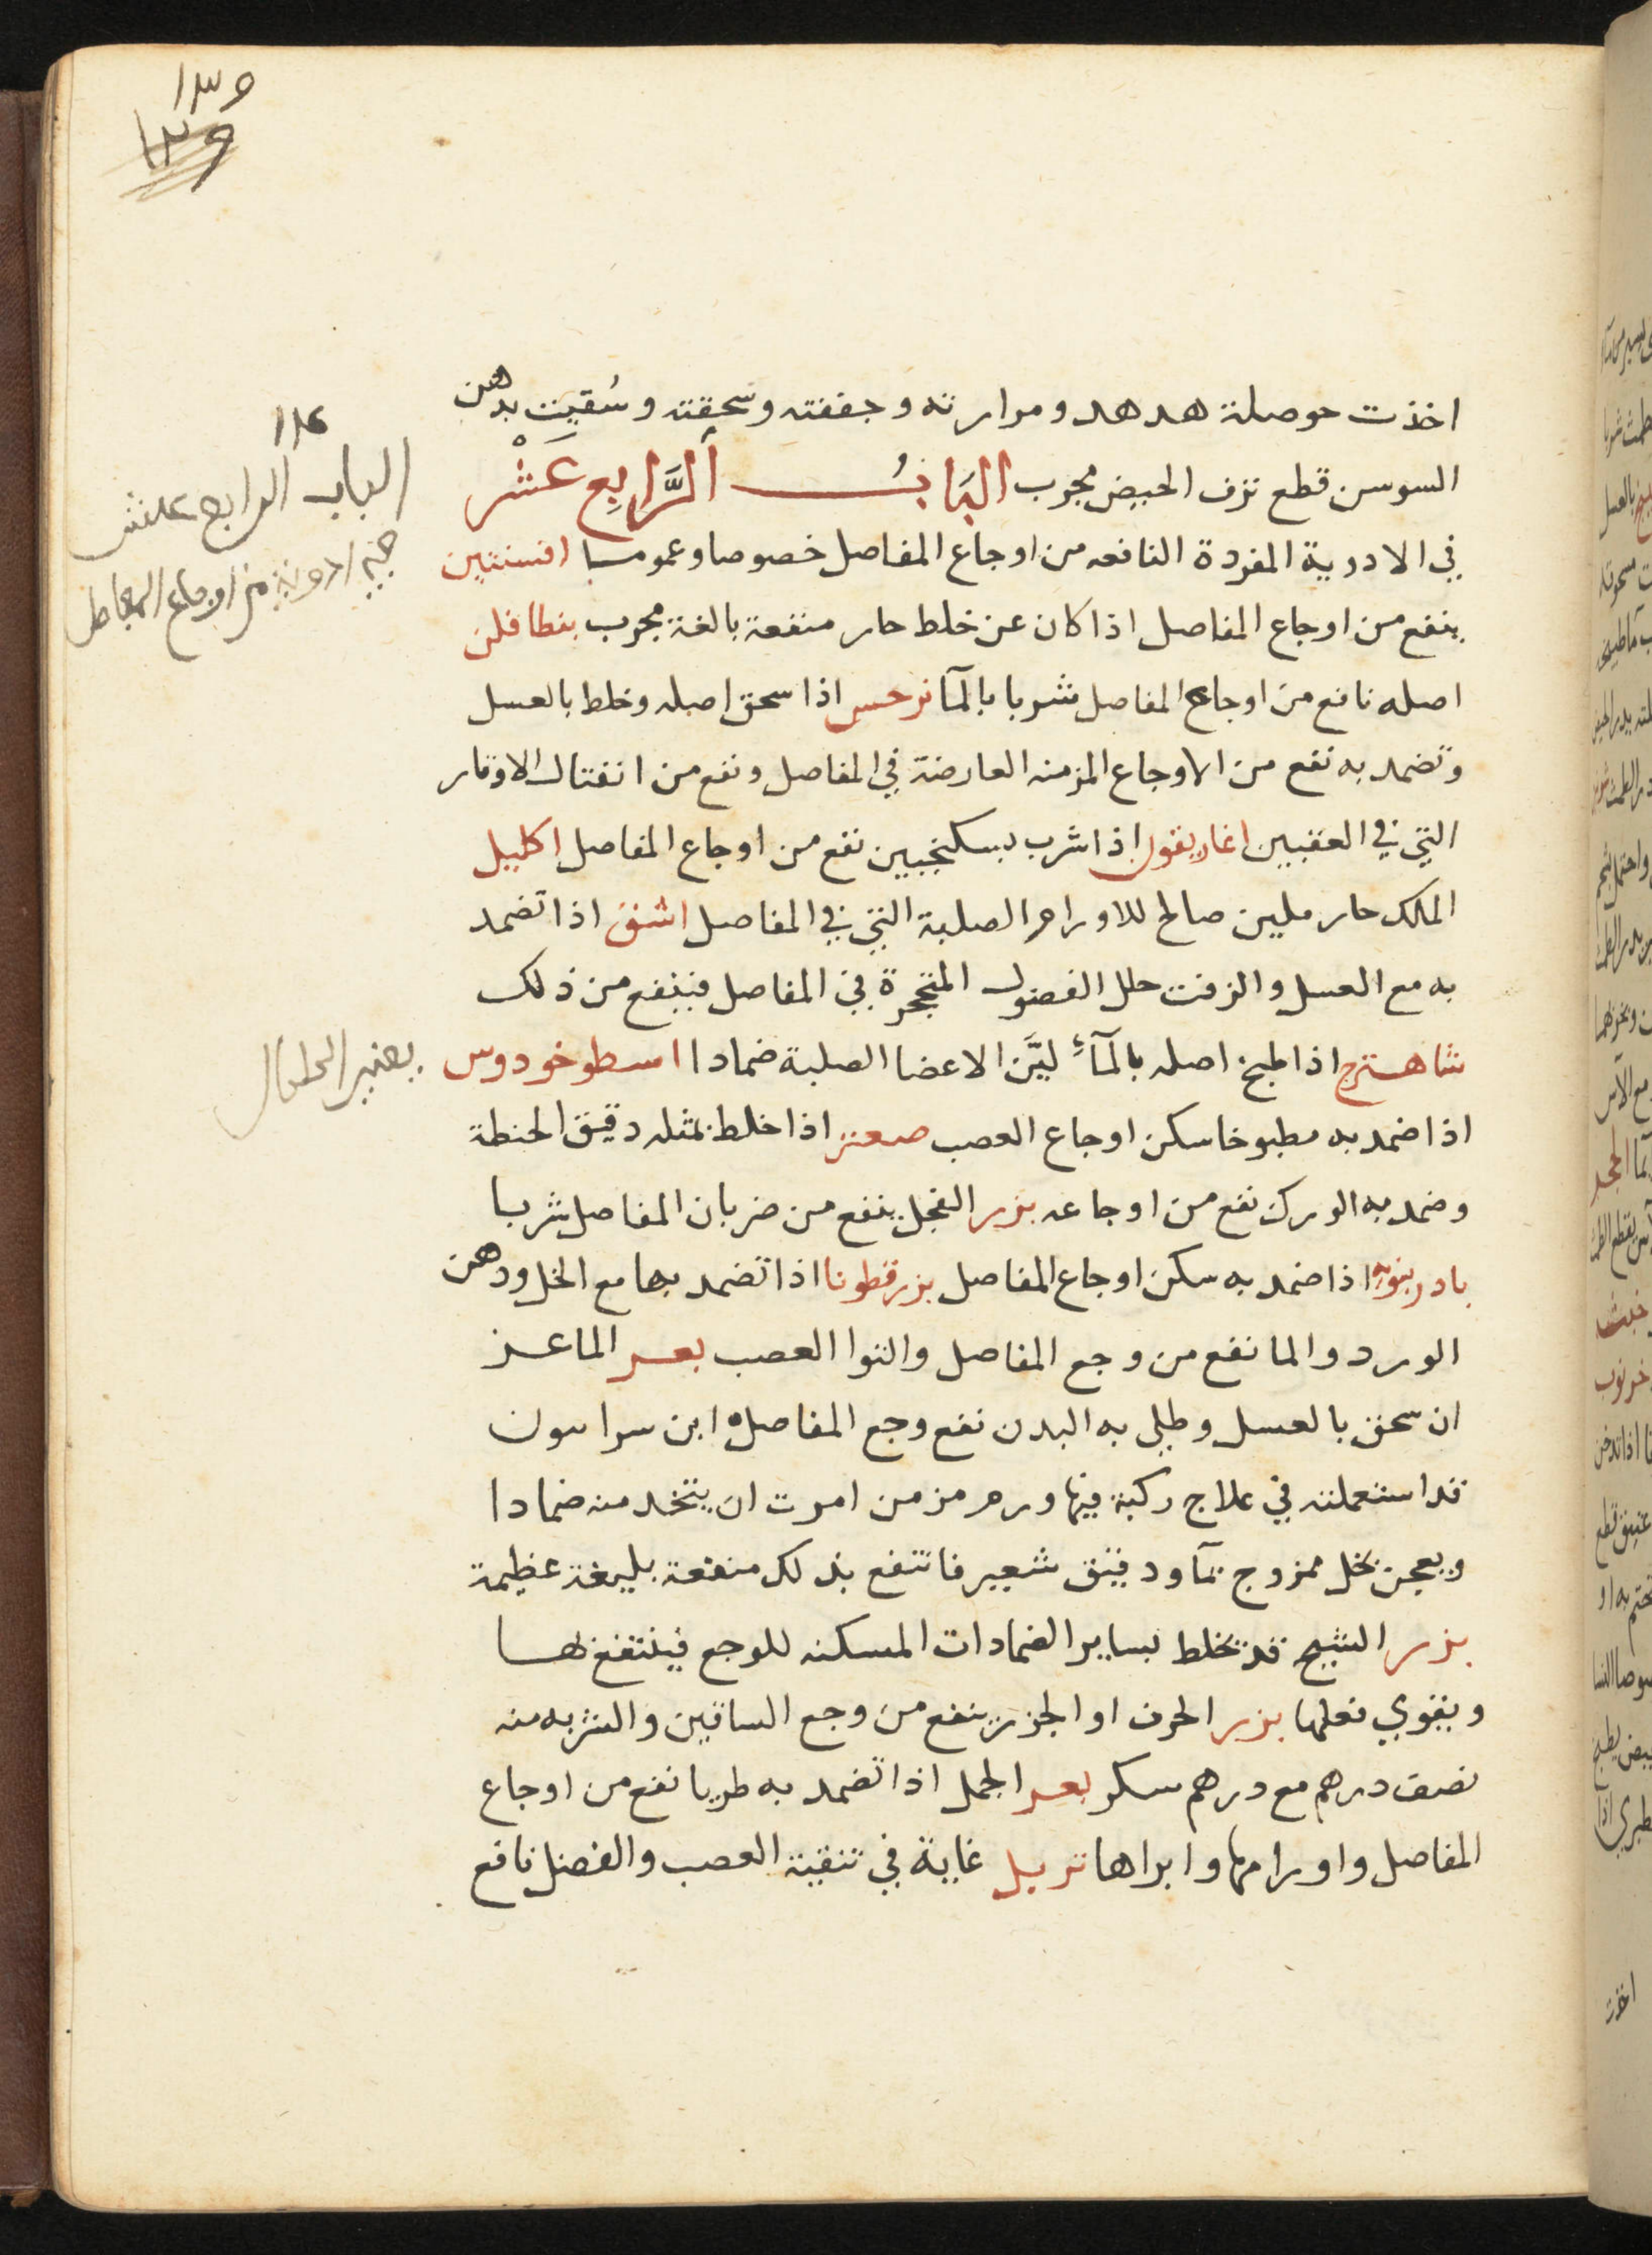 ١٣٩
١٣٩
اخذت حوصلة هدهد ومرارته وجففته وسحقته وسُقيت بدهن
السوسن قطع نزف الحيض مجرب البَابُ الرَّابِع عَشَر
في الادوية المفردة النافعه من اوجاع المفاصل خصوصا وعموما افسنتين
ينفع من اوجاع المفاصل اذا كان عن خلط حار منفعة بالغة مجرب بنطافلن
اصله نافع من اوجاع المفاصل شربا بالمآ نرجس اذا سحق اصله وخلط بالعسل
وتضمد به نفع من الاوجاع المزمنه العارضة في المفاصل ونفع من انفتال الاوتار
التي في العقبين اغاريقون اذا شرب بسكنجبين نفع من اوجاع المفاصل اكليل
الملك حار ملين صالح للاورام الصلبة التي في المفاصل اشق اذا تضمد
به مع العسل والزفت حلل الفضول المتحجرة في المفاصل فينفع من ذلك
شاهترج اذا طبخ اصله بالمآءِ ليَّن الاعضا الصلبة ضمادا اسطوخودوس
اذا ضمد به مطبوخا سكن اوجاع العصب صعتر اذا خلط بمثله دقيق الحنطة
وضمد به الورك نفع من اوجاعه بزر الفجل ينفع من ضربان المفاصل شربا
بادرنبويه اذا ضمد به سكن اوجاع المفاصل بزرقطونا اذا تضمد بها مع الخل ودهن
الورد والما نفع من وجع المفاصل والتوا العصب بعر الماعز
ان سحق بالعسل وطلي به البدن نفع وجع المفاصل ابن سرابيون
قد استعملته في علاج ركبة فيها ورم مزمن امرت ان يتخد منه ضمادا
ويعجن بخل ممزوج بمآ ودقيق شعير فانتفع بذلك منفعة بليغة عظيمة
بزر الشبيح قد تخلط بساير الضمادات المسكنه للوجع فينتفع بها
ويقوي فعلها بزر الحرف او الجزر ينفع من وجع الساقين والشربه منه
نصف درهم مع درهم سكر بعر الجمل اذا تضمد به طريا نفع من اوجاع
المفاصل واورامها وابراها تربد غاية في تنقية العصب والفضل نافع
١١٤
الباب الرابع عشر
في ادوية من اوجاع المفاصل